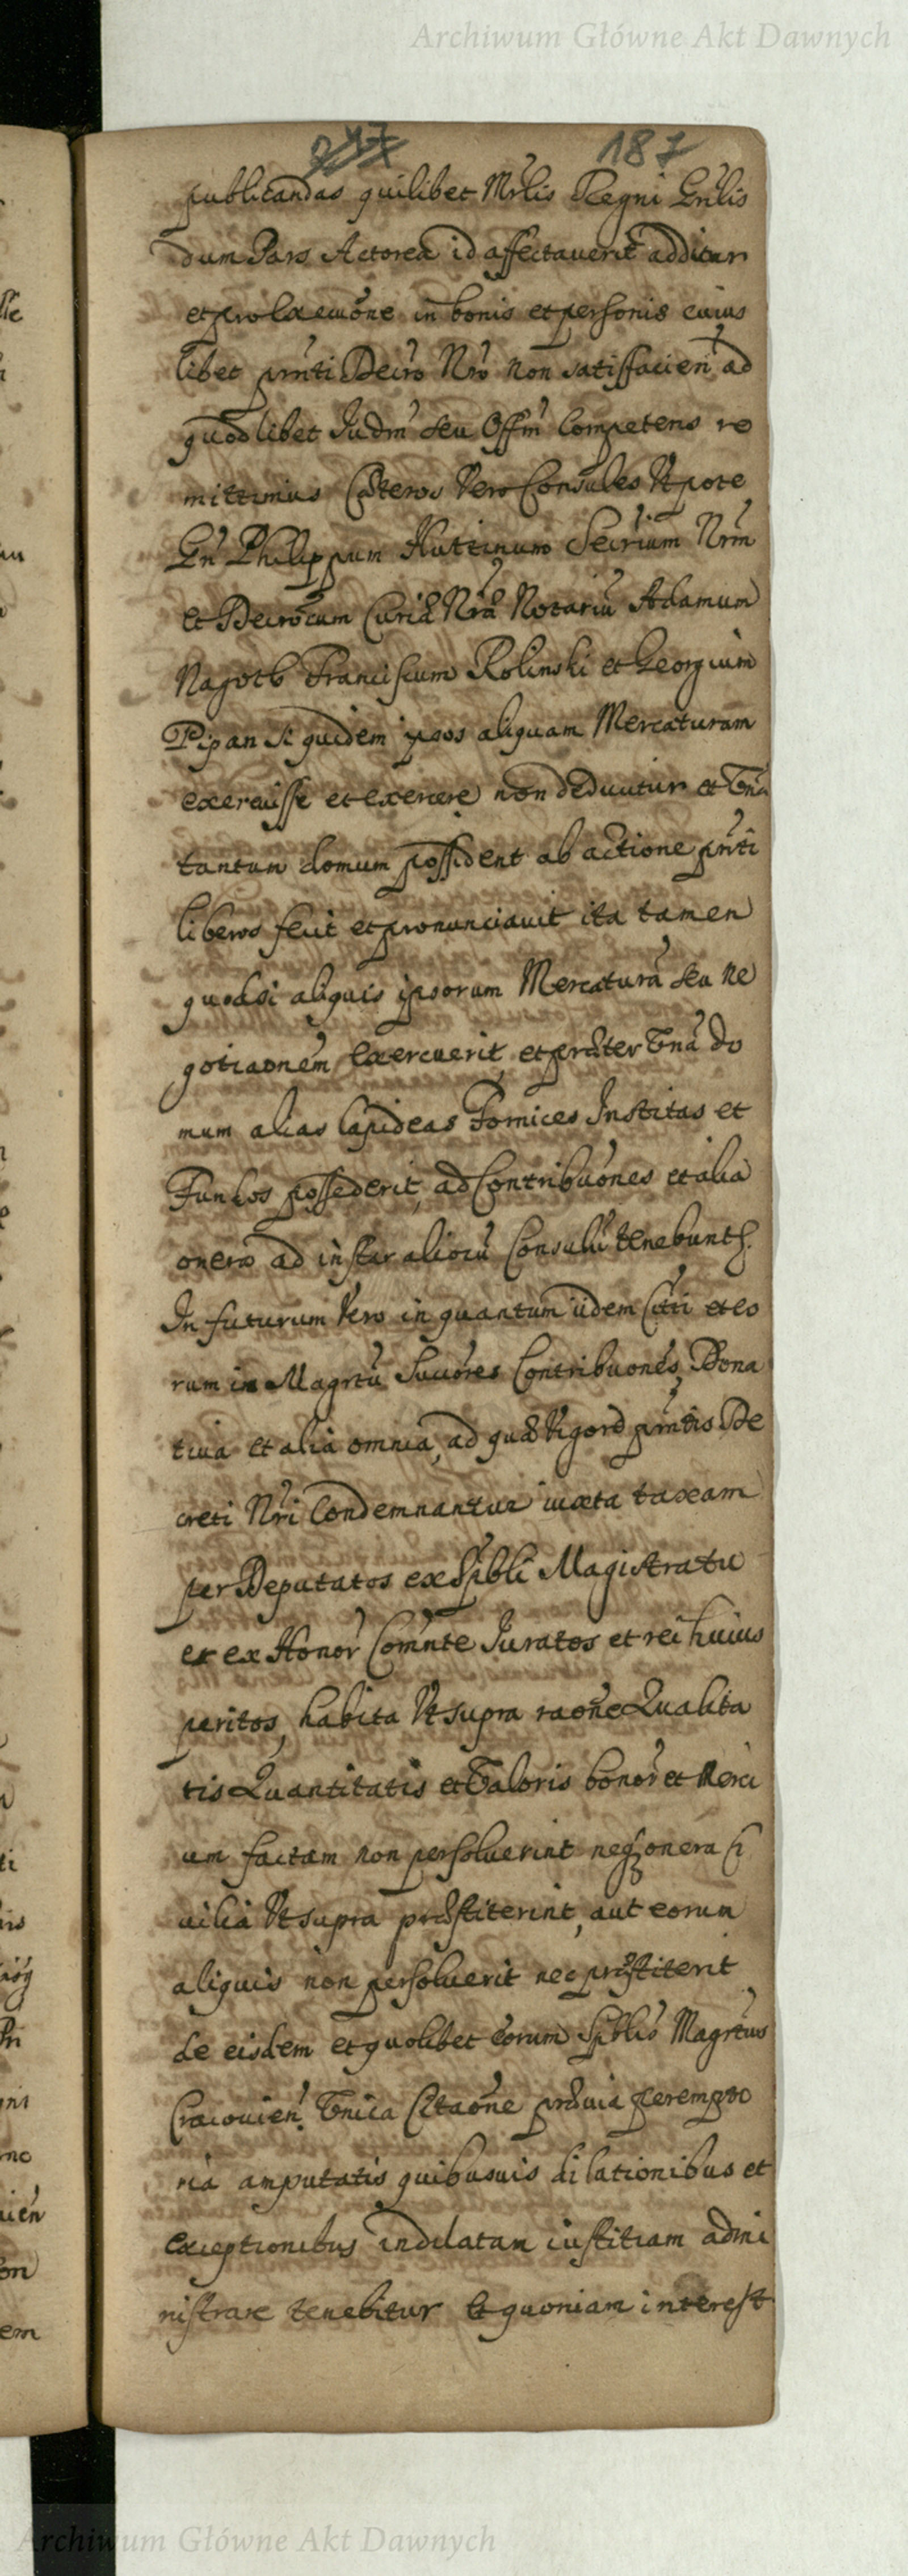 Archiwum Główne Akt Dawnych
187
publicandas quilibet Mrlis Regni Gnlis
dum Pars Actorea id affectaverit additur
et pro Exeuõne in bonis et personis cuius
libet pñnti Decro Nro non satisfacien ad
quodlibet Judm seu Offm Competens re
mittimus Cæteros Vero Consules Utpote
Gn Philippum Huttinum Secrium Nrm
et Decrõcum Curiæ Nræ Notariũ Adamum
Nagoth Franciscum Rolinski et Georgium
Pipan Si quidem ipsos aliquam Mercaturam
exercuisse et exercere non deducitur et Unã
tantum domum possident ab actione pñti
liberos fecit et pronunciavit ita tamen
quodsi aliquis ipsorum Mercaturã seu Ne
gotiaõnem Exercuerit, et præter Unã do
mum alias lapideas Fornices Institas et
Fundos possederit, ad Contribuõnes et alia
onera ad instar aliorũ Consulũ tenebunt.
In futurum Vero in quantum iidem Citti et eo
rum in Magrtũ Succõres Contribuõnes, Dona
tiva et alia omnia, ad quæ Vigore pñntis De
creti Nri Condemnantur iuxta taxam
per Deputatos ex Spibli Magistratu
et ex Honor Comñte Juratos et rei huius
peritos, habita Ut supra raõne Qualita
tis Quantitatis et Valoris bonor et Merci
um factam non persolverint neq onera Ci
uilia Ut supra præstiterint, aut eorum
aliquis non persolverit nec præstiterit
de eisdem et quolibet eorum Spblis Magrtus
Cracovien Unica Citaõne prævia perempto
ria amputatis quibusvis dilationibus et
exceptionibus indilatam iustitiam admi
nistrare tenebitur Et quoniam interest
Archiwum Główne Akt Dawnych